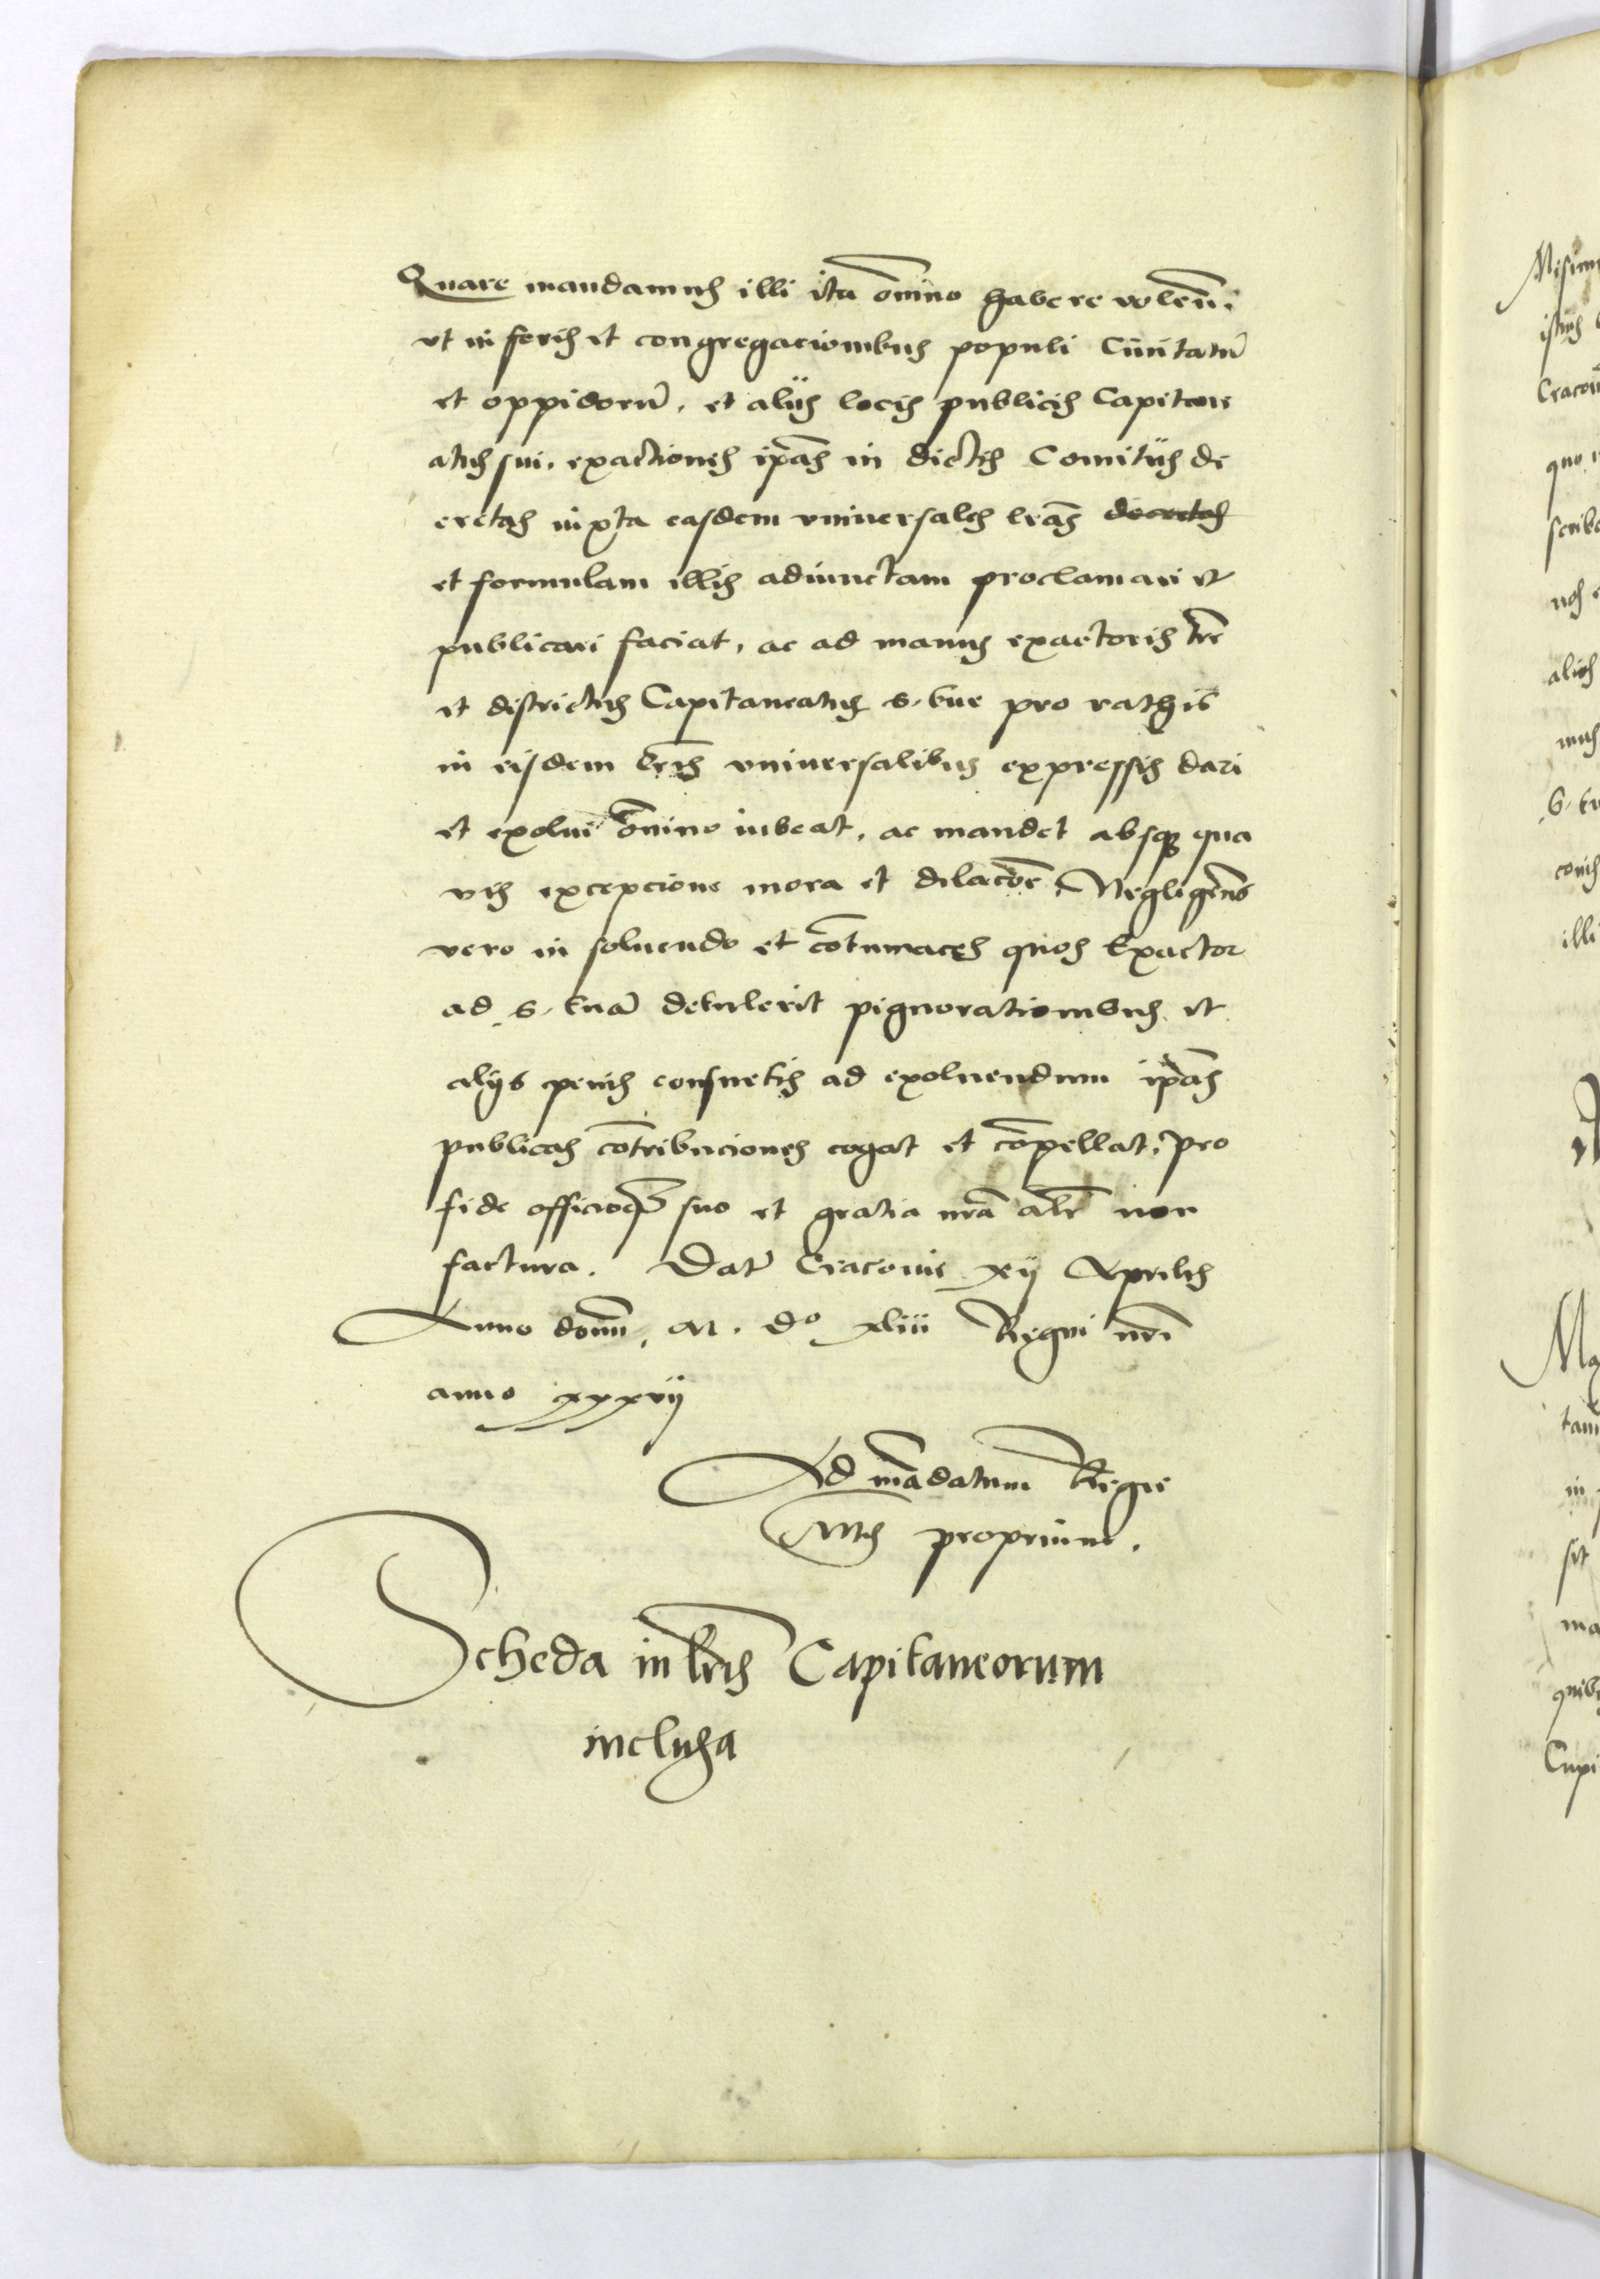 Quare mandamus illi ita om̄ino habere volen̄.
vt in foris et congregacionibus populi Ciuitatū
et oppidorū, et alijs locis publicis Capitane
atus sui, exactiones ip̄as in dictis Comitijs de
cretas iuxta easdem vniuersales lr̄as decretas
et formulam illis adiunctam proclamari et
publicari faciat, ac ad manus exactoris tr̄e
et districtus Capitaneatus S. tue pro rathis
in eisdem lr̄is vniuersalibus expressis dari
et exolui om̄ino iubeat, ac mandet absq; qua
vis excepcione mora et dilacōe. Negligen̄s
vero in soluendo et cōtumaces quos Exactor
ad S. tuā detulerit pignorationibus et
alijs penis consuetis ad exoluendum ip̄as
publicas cōtribuciones cogat et cōpellat, pro
fide officioq; suo et gratia nr̄a alr̄ non
factura. Dat̄ Cracouie xij Aprilis
Anno domī. M. D° xliii Regni nr̄i
anno xxxvij
Ad mādatum Regie
Mtis proprium.
Scheda in lr̄is Capitaneorum
inclusa